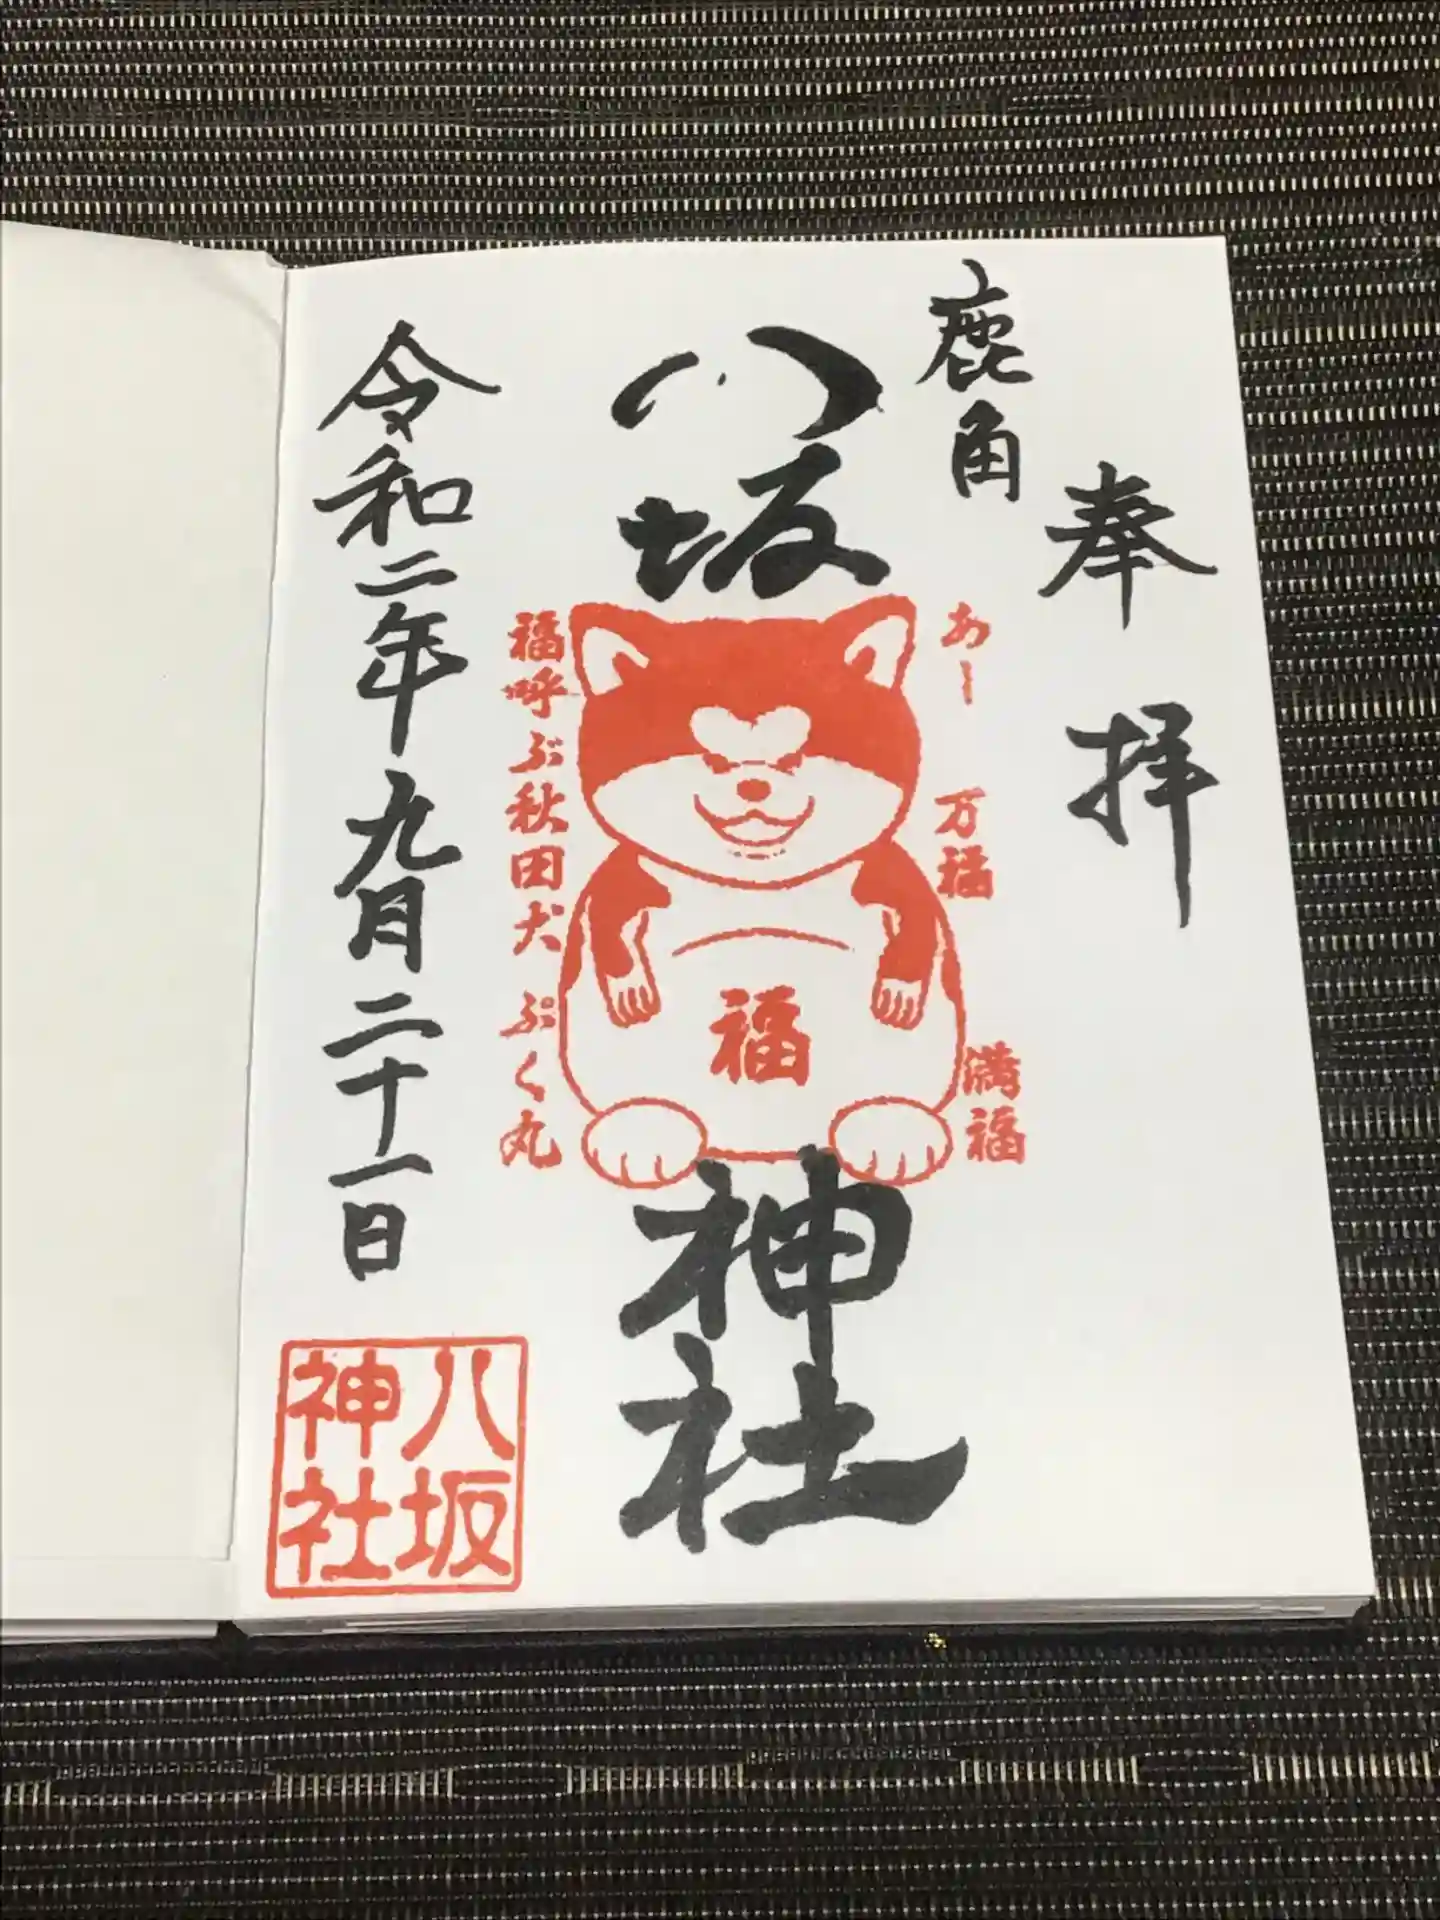 奉拝
鹿角
八坂神社
あー
万福
満福
福
福呼ぶ秋田犬 ぷく丸
令和二年九月二十一日
八坂
神社